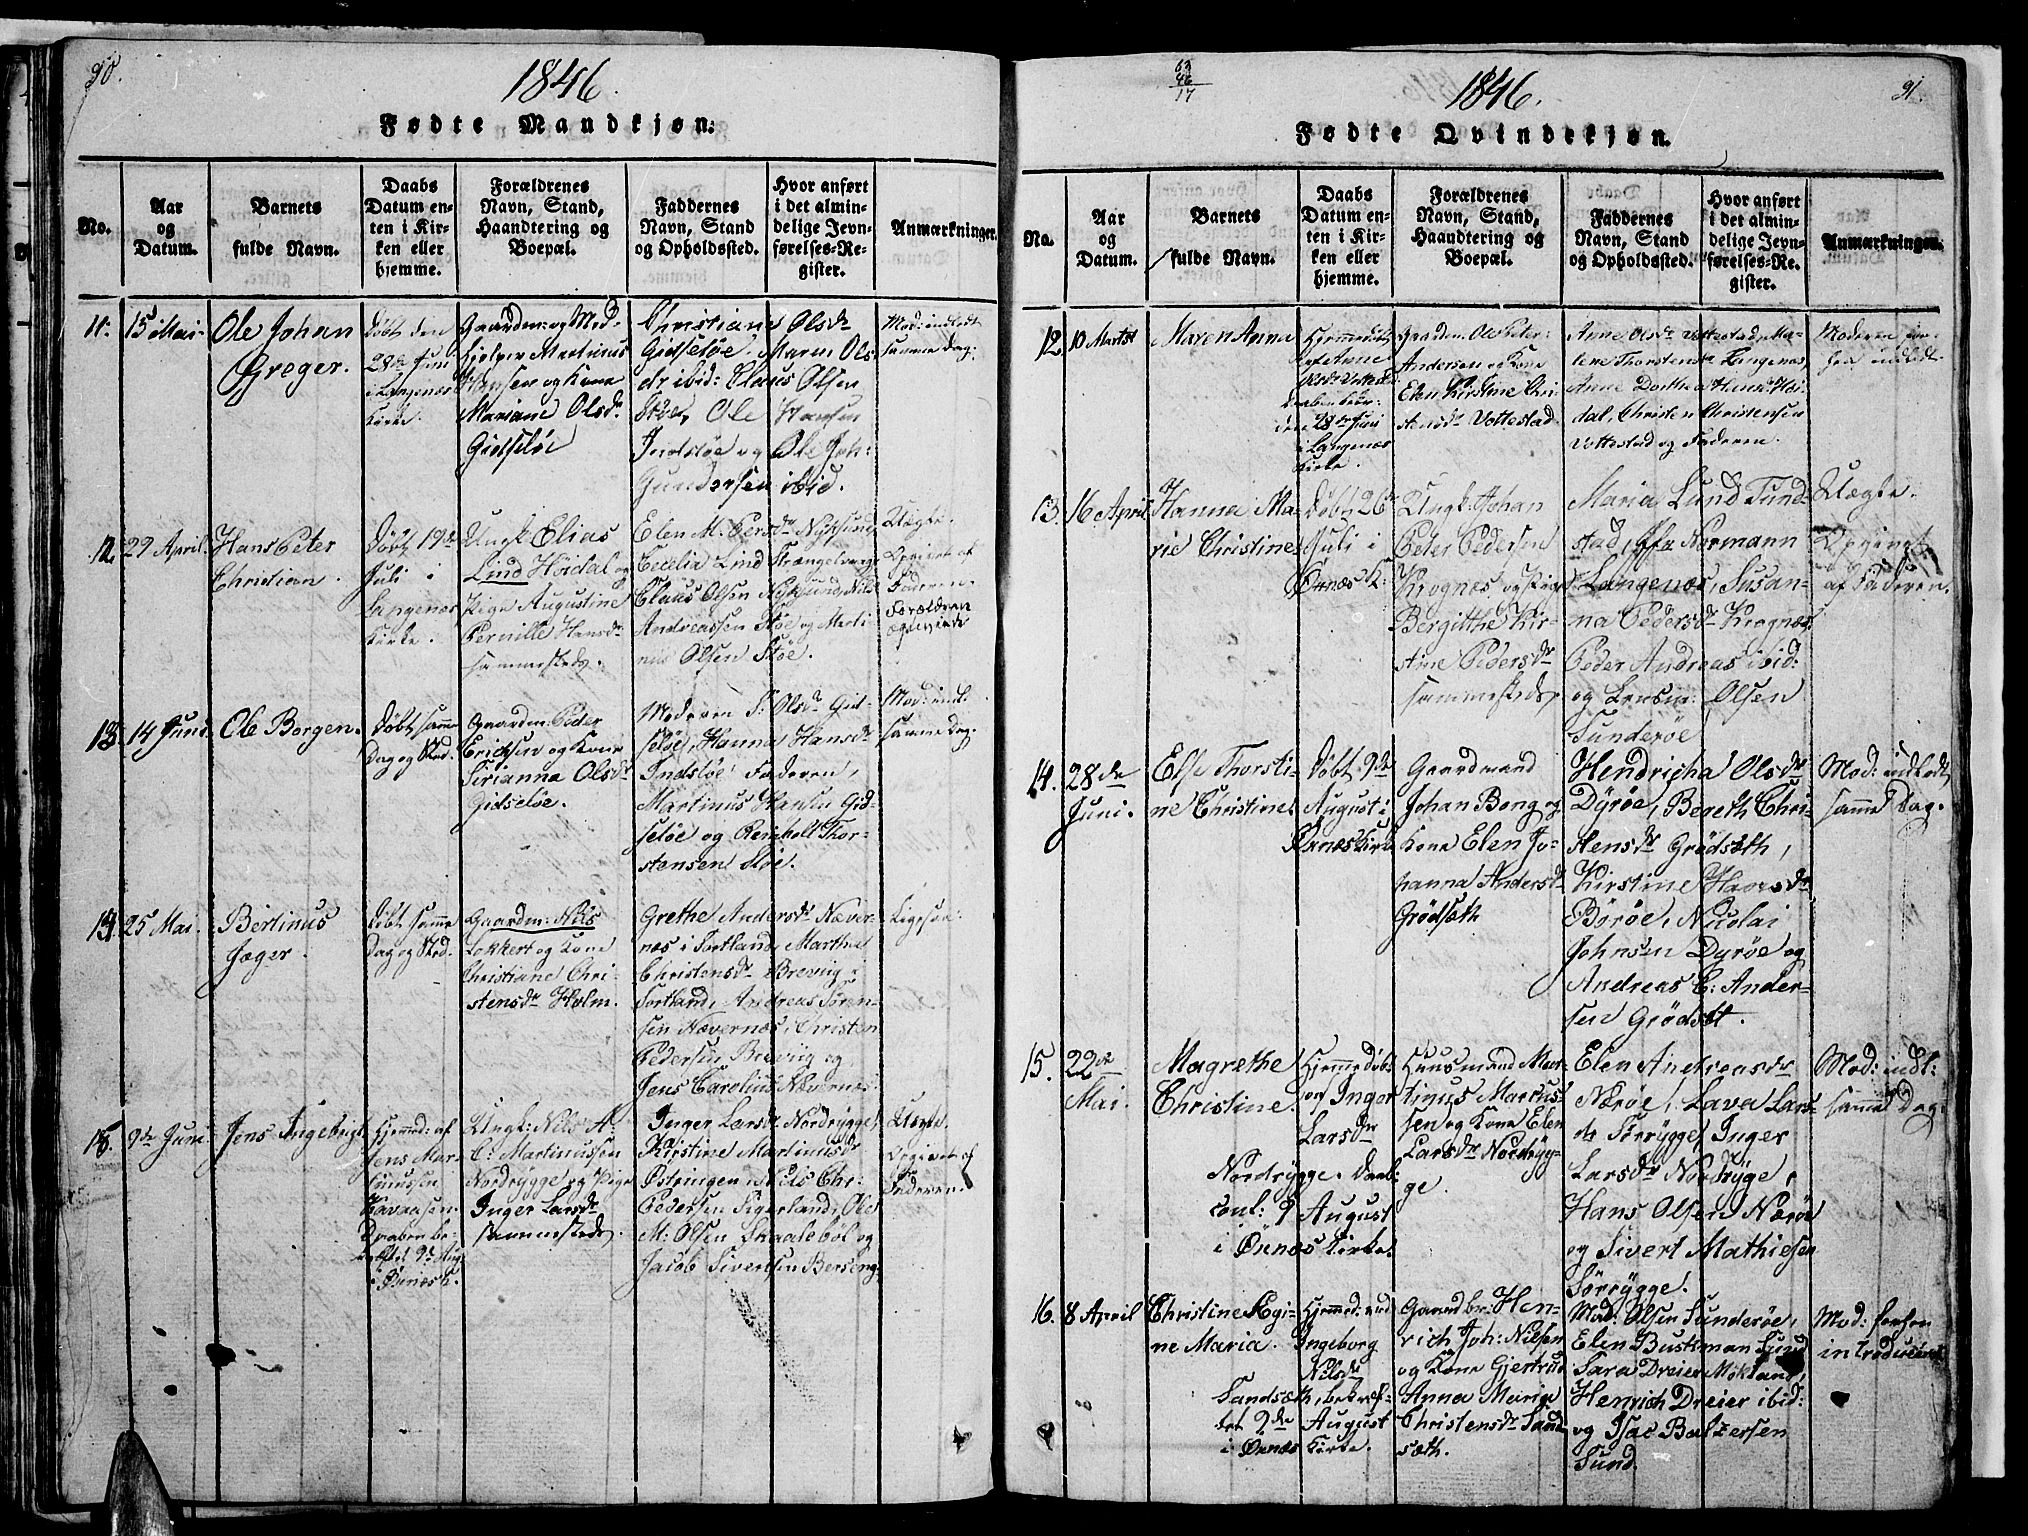 90.
1846.
Fødte Mandkjøn.
No.
Aar
og
Datum.
Barnets
fulde Navn.
Daabs
Datum en-
ten i Kir-
ken eller
hjemme.
Forældrenes
Navn, Stand,
Haandtering og
Boepæl.
Faddernes
Navn, Stand
og Opholdssted.
Hvor anført
i det almin-
delige Jevn-
førelses-Re-
gister.
Anmærkninger.
11.
15 Mai.
Ole Johan
Greger.
Døbt den
28de Juni
i Langenæs
Kirke.
Gaardm: og Med-
hjelper Martinus
Hansen og Kone
Mariane Olsdr
Gidsløe
Christiane Olsdr
Gidsløe. Maren Ols-
dr ibid: Claus Olsen
Ole Hansen
Indsløe og Ole Joh:
Gundersen ibid.
Mod: indledt
samme Dag.
12.
29 April.
Hans Peter
Christian.
Døbt 19de
Juli i
Langenæs
Kirke.
Ungk. Elias
Lind Höidal og
Pige Augustine
Pernille Hansdr
sammesteds.
Elen M. Persdr Nyksund,
Cecelia Lind Strængelvaag,
Claus Olsen Nyksund, Nils
Andreassen Støe og Marti-
nus Olsen Støe.
Uægte.
Opgivet af
Faderen.
Forældrene
ægteviede
13.
14 Juni
Ole Borgen.
Døbt samme
Dag og Sted.
Gaardm: Peder
Erichsen og Kone
Sirianna Olsdr
Gidsløe.
Moderen S: Olsdr Gid-
sløe, Hanna Hansdr
Indsløe Faderen,
Martinus Hansen Gid-
seløe og Reinholt Thor-
stensen Støe.
Mod: indl.
samme Dag.
14.
25 Mai.
Bertinus
Jæger.
Døbt samme
Dag og Sted.
Gaardm: Nils
Lokkert og Kone
Christiane Chri-
stensdr Holm.
Grethe Andersdr Næver-
næs i Sortland, Marthe
Christensdr Breviig i
Sortland, Andreas Søren-
sen Nævernæs, Christen
Pedersen Breviig og
Jens Carolius Nævernæs
Ligesaa:
15.
9de Juni
Jens Ingebrigt
Hjemmed: af
Jens Mar-
kussen
Kavaasen.
Daaben be-
kræftet 9de Aug
i Øxnæs K.
Ungk: Nils A.
C. Martinussen
Nordrygge og Pige
Inger Larsdr
sammesteds.
Inger Larsdr Nordrygge,
Kirstine Martinusdr
Østringen Nils Chr:
Pedersen Sigerland, Ole
M. Olsen Skaalebøl og
Jacob Sivertsen Berseng
Uægte.
Opgivet af
Faderen.
63
46
17
1846.
91.
Fødte Qvindekjøn.
No.
Aar
og
Datum.
Barnets
fulde Navn.
Daabs
Datum en-
ten i Kir-
ken eller
hjemme.
Forældrenes
Navn, Stand,
Haandtering og
Boepæl.
Faddernes
Navn, Stand
og Opholdssted.
Hvor anført
i det almin-
delige Jevn-
førelses-Re-
gister.
Anmærkninger.
12.
10 Marts
Maren Anna
Hjemmedøbt
af Anne
Olsdr Vottestad
Daaben bekr:
den 28de Juni
i Langenæs
Kirke.
Gaardm. Ole Peter
Andersen og Kone
Elen Kirstine Chri-
stensdr Vottestad
Anne Olsdr Vottestad, Ma-
lene Thorstensdr Langenæs,
Anne Dorthea Hemsø Høi-
dal, Christen Christensen
Vottestad og Faderen.
Moderen for-
hen indledt.
13.
16 April
Hanna Ma-
rie Christine
Døbt 26de
Juli i
Øxnæs K:
Ungk: Johan
Peter Pedersen
Krognes og Pige
Bergitthe Kir-
stine Pedersdr
sammesteds
Maria Lund Tund-
stad, Normann
Langenæs, Susan-
na Pedersdr Krognæs,
Peder Andreas ibid:
og Olsen
Sunderöe
Uægte.
Opgivet
af Faderen.
14.
28de
Juni.
Else Thorsti-
ne Christine.
Døbt 9de
August i
Øxnæs Kirke
Gaardmand
Johan Bong og
Kone Elen Jo-
hanna Andersdr
Grödsæth
Hendricha Olsdr
Dyröe, Bereth Chri-
stensdr Grödsæth,
Kirstine Hansdr
Börøe, Nicolai
Johnsen Dyröe og
Andreas C: Ander-
sen Grödsæt.
Mod: indledt
samme Dag.
15.
22de
Mai.
Magrethe
Christine.
Hjemmedøbt
af Inger
Larsdr
Nordrygge. Daab:
conf: 9 August
i Øxnæs Kirke.
Huusmand Mar-
tinus Marcus-
sen og Kone Elen
Larsdr Nordryg-
ge.
Elen Andreasdr
Nærøe, Lava Lars-
dr Sørrygge, Inger
Larsdr Nordryge,
Hans Olsen Nærøe
og Sivert Mathiesen
Sørrygge.
Mod: indl:
samme Dag.
16.
8 April
Christine Regi-
ne Maria.
Hjemmed: ved
Ingeborg
Nilsdr
Sandsæth, bekræf-
tet 9de August
i Øxnæs Kirke.
Gaardbr: Hen-
rich Joh: Nilsen
og Kone Gjertrud
Anna Maria
Christensdr Sand-
sæth.
Mad: Olsen Sunderøe,
Elen Buskman Sund
Sara Dreier Mökland,
Henrich Dreier ibid:
og Isac Baltzersen
Sund.
Mod: forhen
introduceret